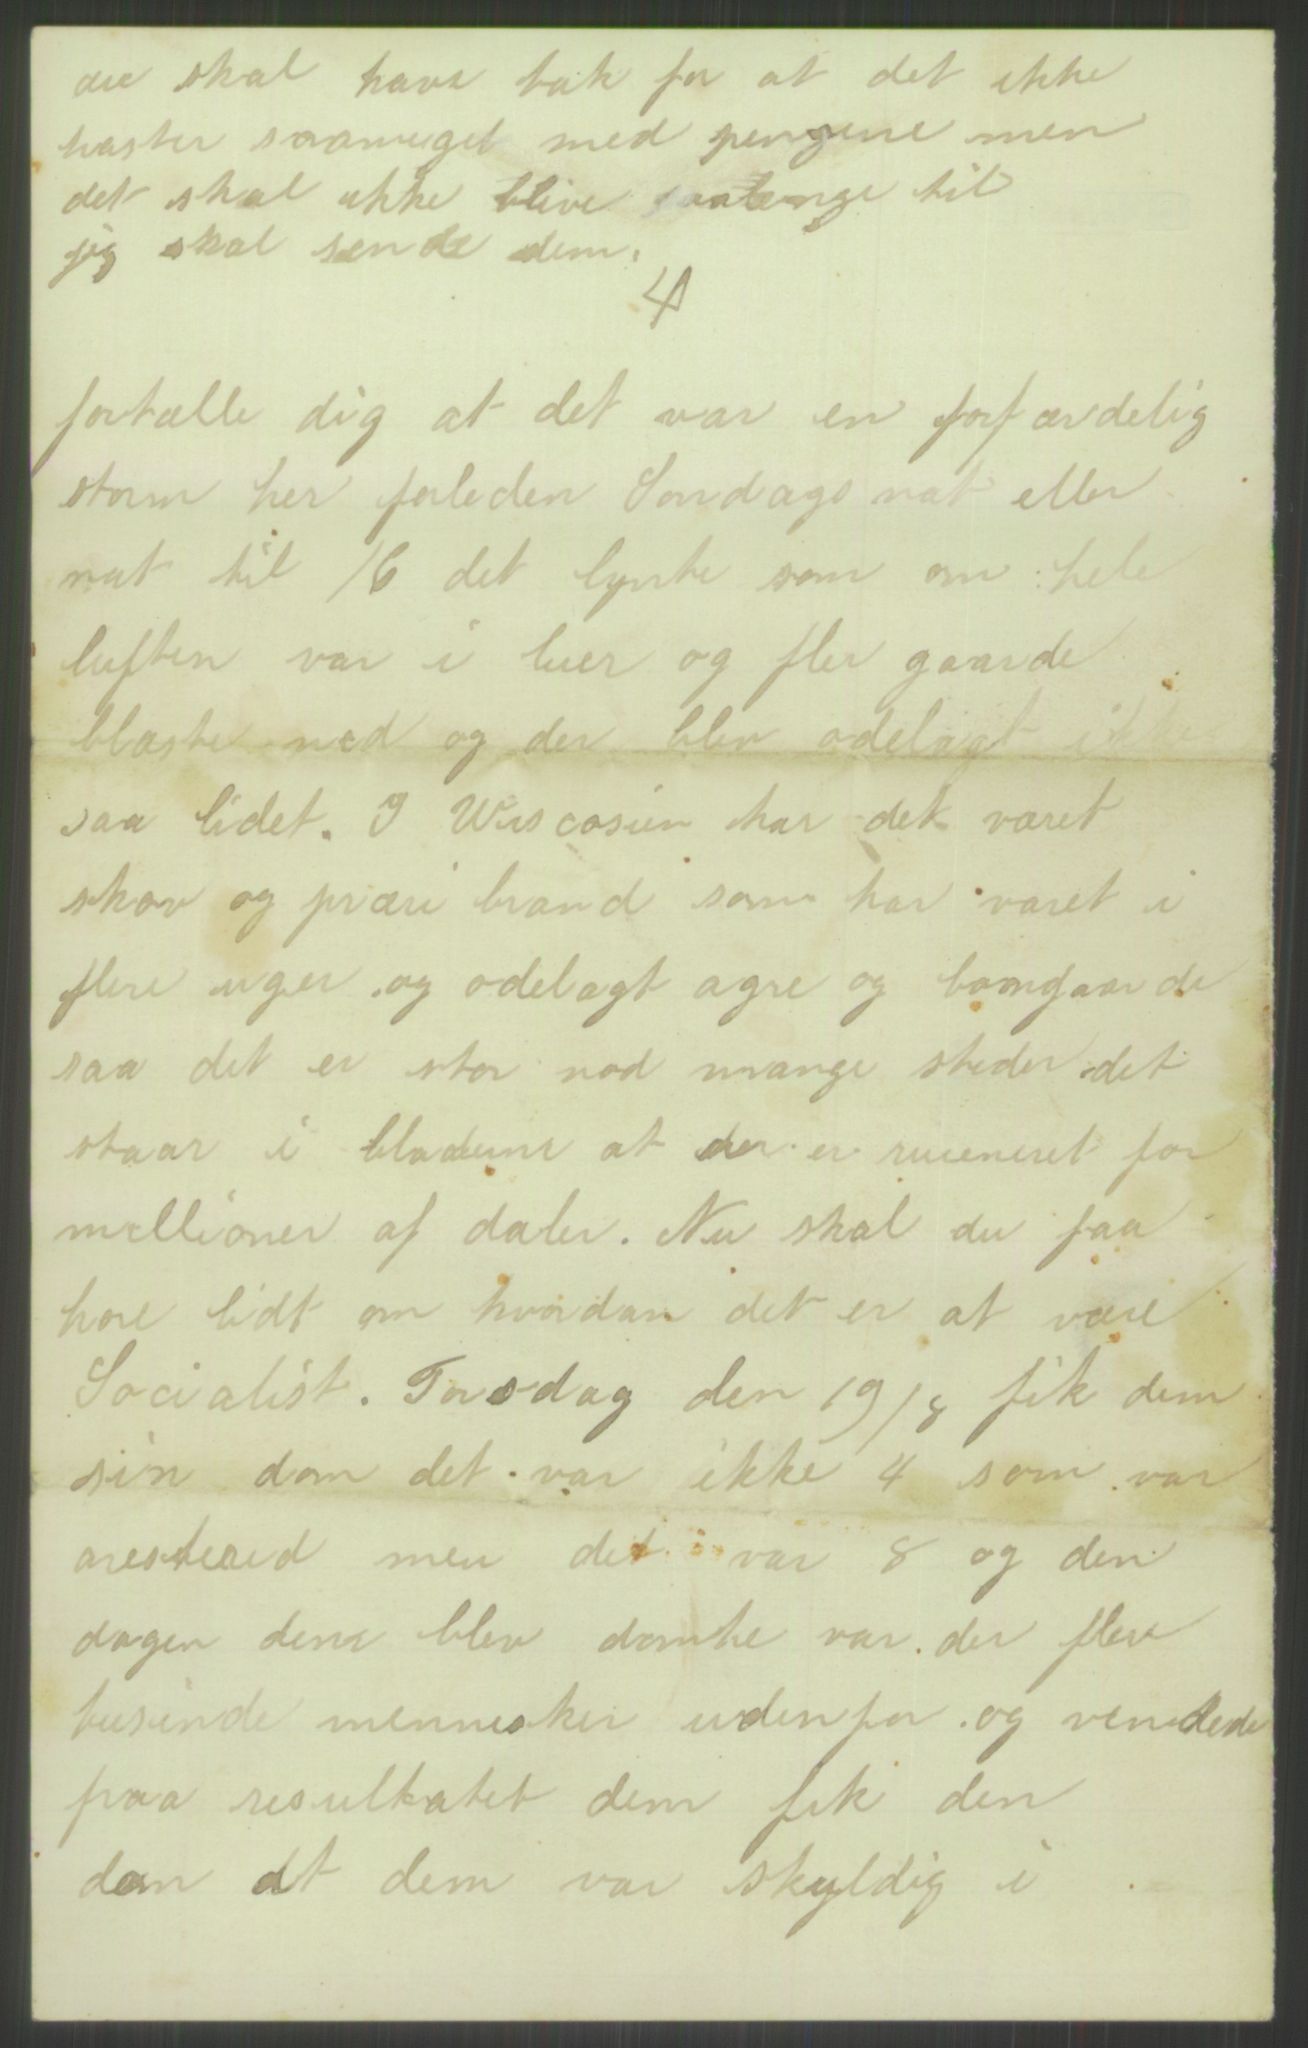 du skal have tak for at det ikke
haster saameget med pengene men
det skal ikke blive saalenge til
jeg skal sende dem.
4
fortælle dig at det var en forfærdelig
storm her forleden Søndags nat eller
nat til 16 det lynte som om hele
luften var i luer og fler gaarde
blæste ned og der blev ødelagt ikke
saa lidet. I Wiscosien har det været
skov og præri brand som har varet i
flere uger og ødelagt agre og bomgaarde
saa det er stor nød mange steder det
staar i bladene at der er ruieneret for
mellioner af daler. Nu skal du faa
høre lidt om hvordan det er at være
Socialist. Torsdag den 19/8 fik dem
sin dom det var ikke 4 som var
arestered men det var 8 og den
dagen dem blev dømte var der flere
tusinde mennesker udenfor og ventede
paa resultatet dem fik den
dom at dem var skyldig i